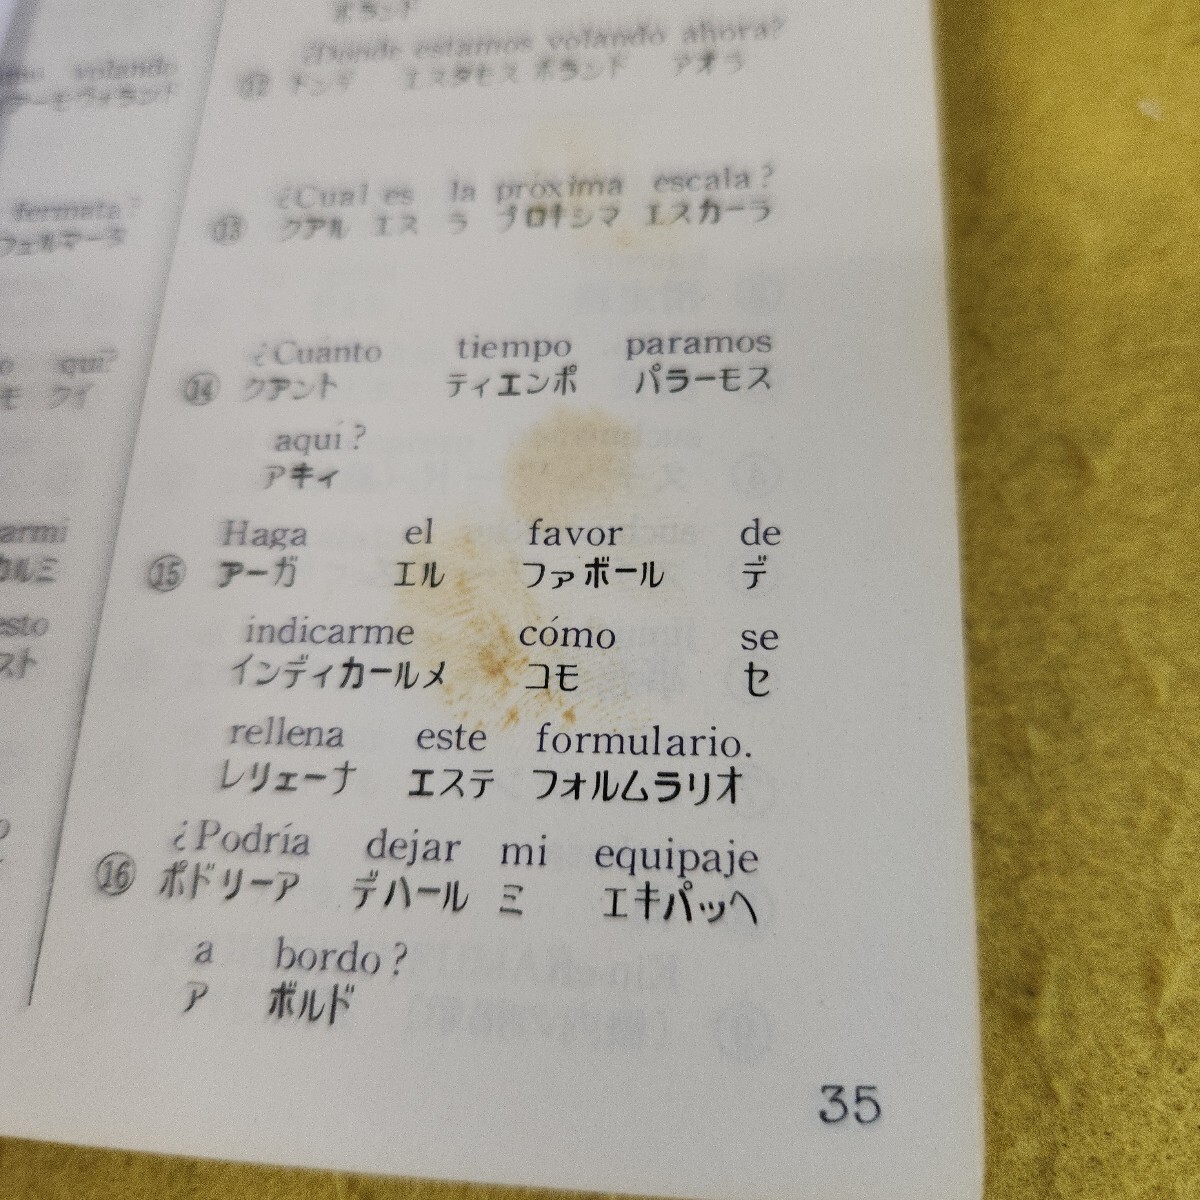 ボランド
¿Dónde estamos volando ahora?
⑫ ドンデ エスタモス ボランド アオラ
¿Cual es la próxima escala?
⑬ クアル エス ラ プロキシマ エスカーラ
¿Cuánto tiempo paramos
⑭ クアント ティエンポ パラーモス
aquí?
アキィ
Haga el favor de
⑮ アーガ エル ファボール デ
indicarme cómo se
インディカールメ コモ セ
rellena este formulario.
レリェーナ エステ フォルムラリオ
¿Podría dejar mi equipaje
⑯ ポドリーア デハール ミ エキパッヘ
a bordo?
ア ボルド
volando
fermata?
フェルマータ
qui?
モ クイ
armi
カルミ
esto
スト
35